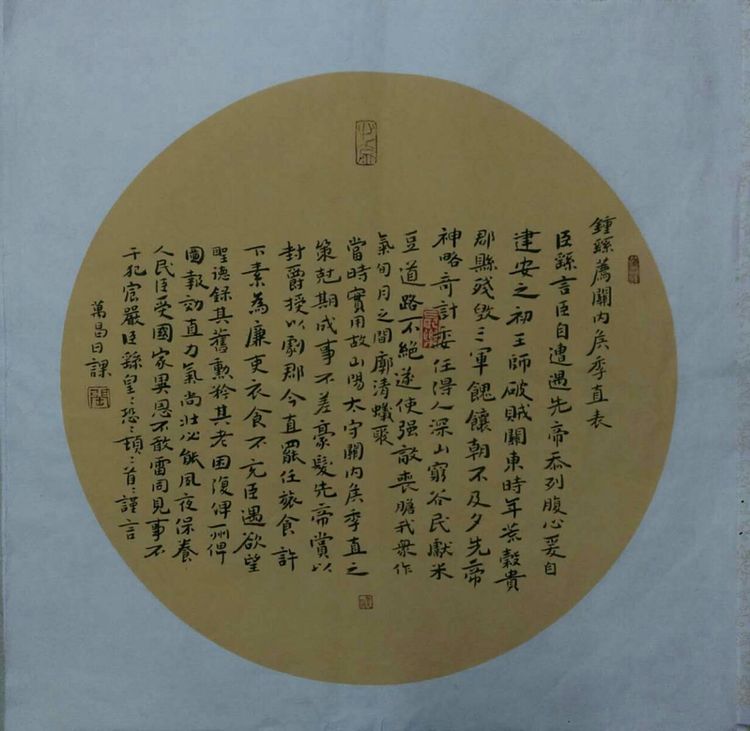 鍾繇薦關內矦季直表
臣繇言臣自遭遇先帝忝列腹心爰自
建安之初王師破賊關東時年荒穀貴
郡縣殘毀三軍餽饟朝不及夕先帝
神略奇計委任得人深山窮谷民獻米
豆道路不絕遂使强敵喪膽我衆作
氣旬月之間廓清蟻聚
當時實用故山陽太守關內矦季直之
策尅期成事不差豪髮先帝賞以
封爵授以劇郡今直罷任旅食許
下素為廉吏衣食不充臣愚欲望
聖德錄其舊勳矜其老困復俾一州俾
圖報効直力氣尚壯必能夙夜保養
人民臣受國家異恩不敢雷同見事不
干犯宸嚴臣繇皇〻恐〻頓〻首〻謹言
萬昌日課